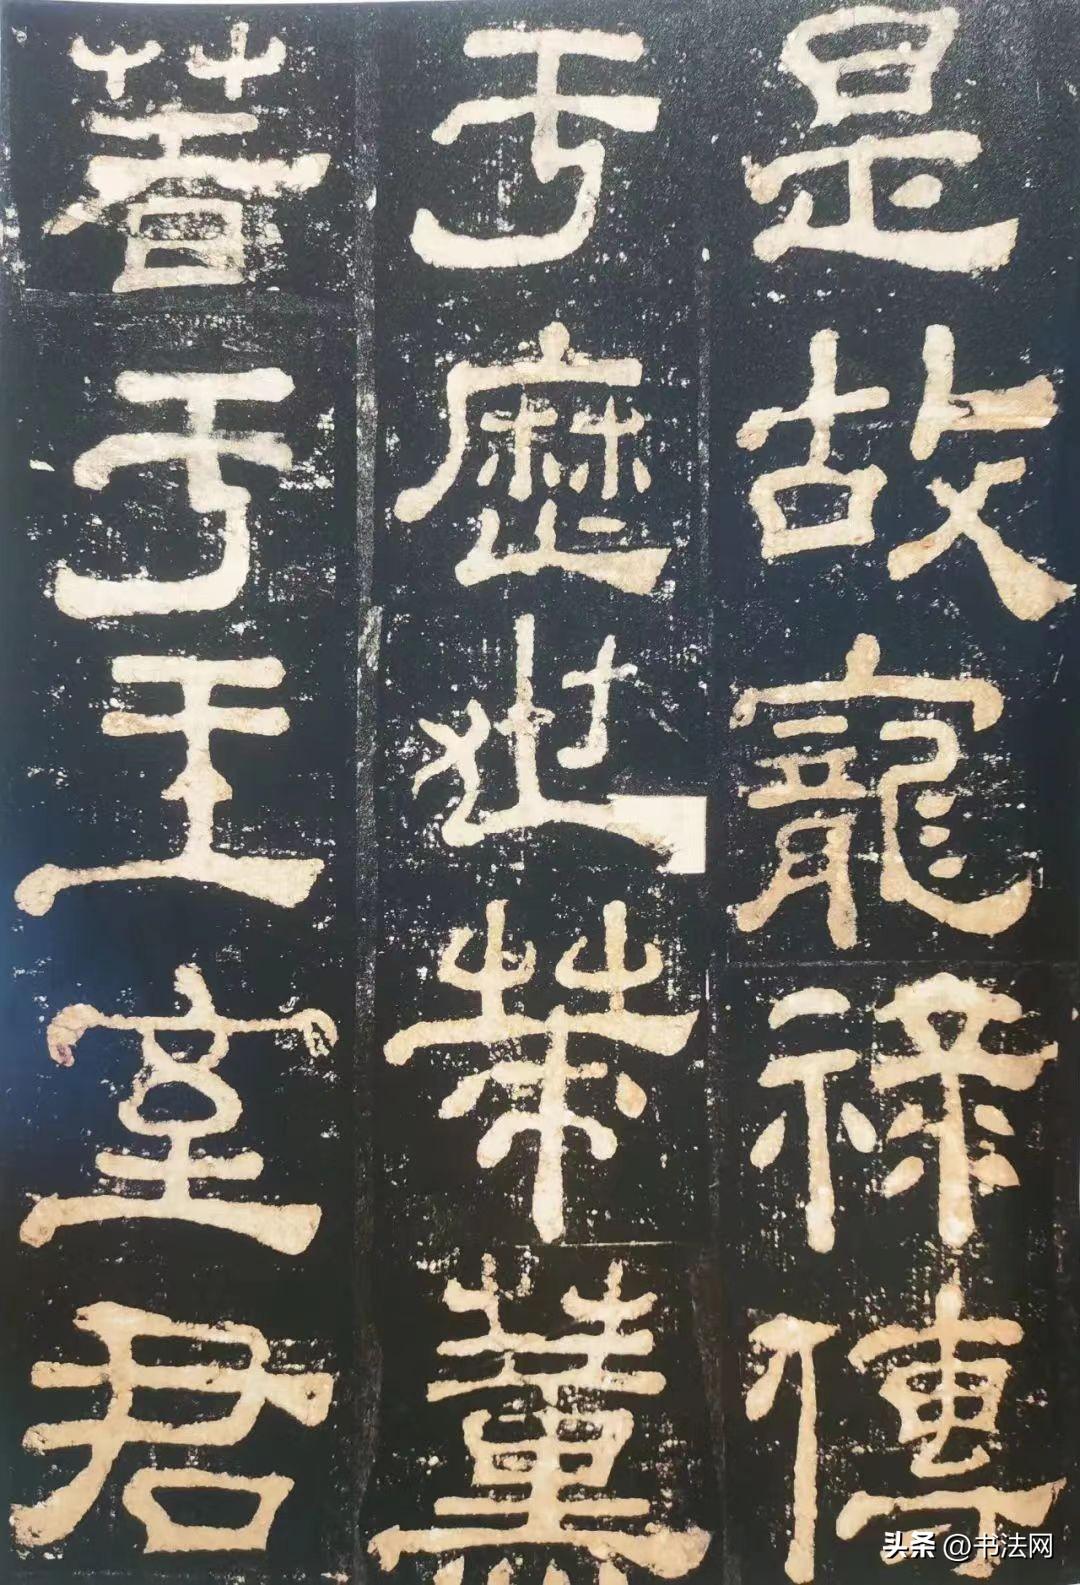 是故寵祿傳
于歷世策薰
著于王室君
头条 @书法网